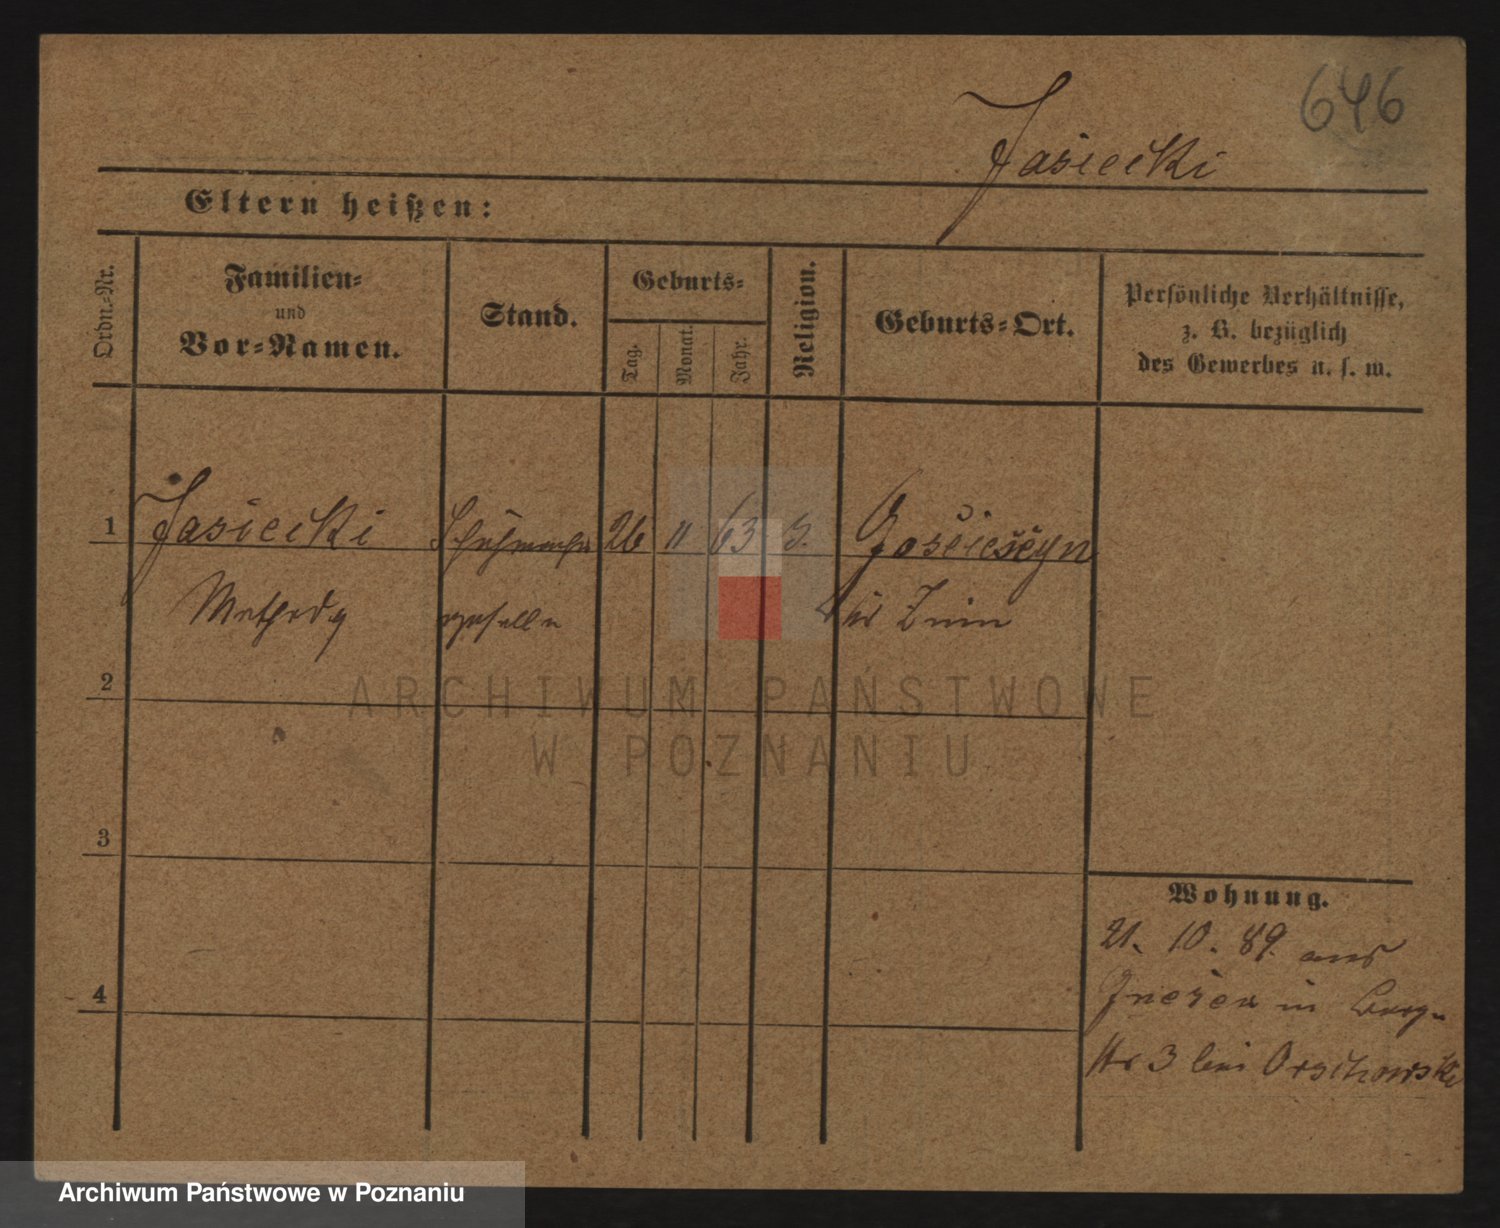 646
Jasiecki
Eltern heißen:
Ordn.-Nr.
Familien-
und
Vor-Namen.
Stand.
Geburts-
Tag.
Monat.
Jahr.
Religion.
Geburts-Ort.
Persönliche Verhältnisse,
z. B. bezüglich
des Gewerbes u. s. w.
1 Jasiecki Schuhmacher 26 11 63
Methody geselle Znin
2
3
4
Wohnung.
21. 10. 89. aus
Gnesen in
3 bei Orschowski
ARCHIWUM PAŃSTWOWE
W POZNANIU
Archiwum Państwowe w Poznaniu